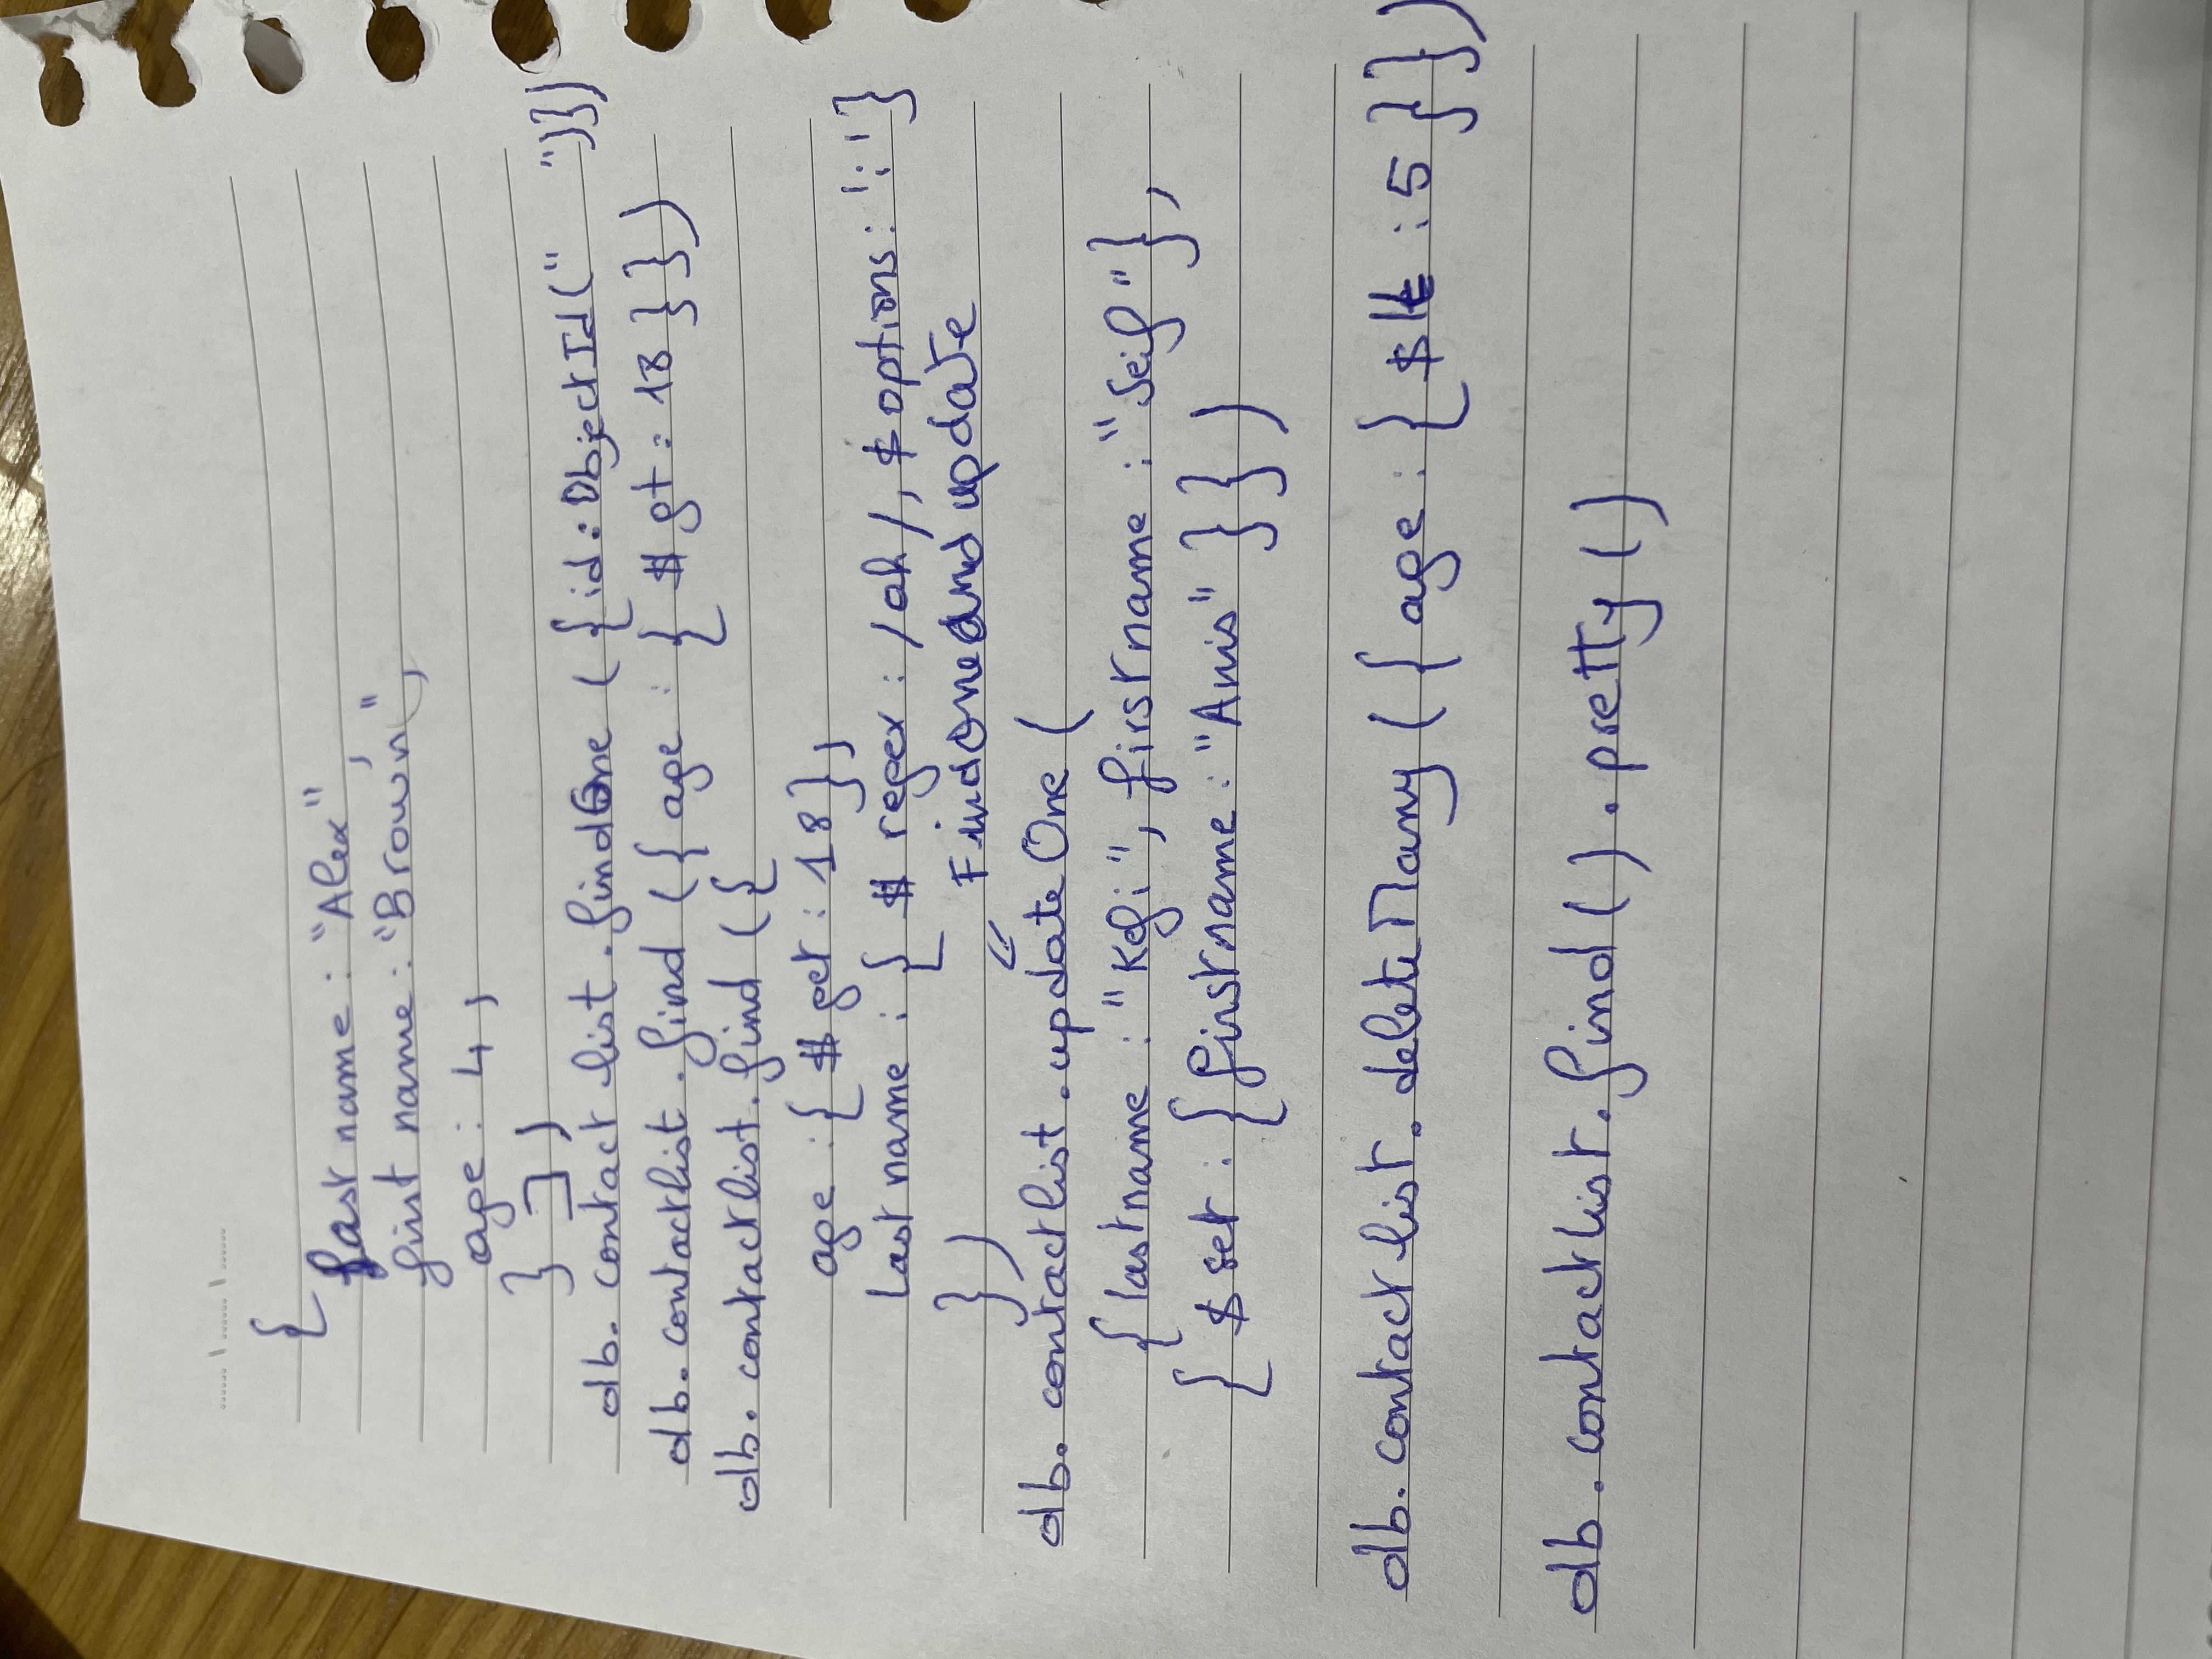 {
last name : "Alex",
first name : "Brown",
age : 4,
} ] )
db. contact list . findOne ( { id : ObjectId ( "    " ) } )
db. contactlist . find ( { age : { $ gt : 18 } } )
db. contactlist . find ( {
age : { $ get : 18 } ,
Last name : { $ regex : /ah/, $ options : 'i' }
} )
FindOneAnd update
db. contactlist . updateOne (
{ lastname : "Kefi", firstname : "Seif" } ,
{ $ set : { firstname : "Anis" } } )
db. contact list . deleteMany ( { age : { $ lt : 5 } } )
db . contactlist . find ( ) . pretty ( )